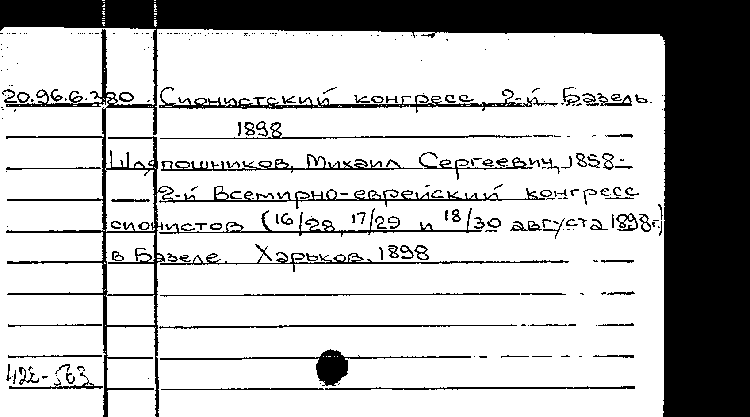 20.96.6.380 Сионистский конгресс, 2-й Базель
1898
Шляпошников, Михаил Сергеевич, 1858-
2-й Всемирно-еврейский конгресс
сионистов (16/28, 17/29 и 18/30 августа 1898г.)
в Базеле. Харьков, 1898